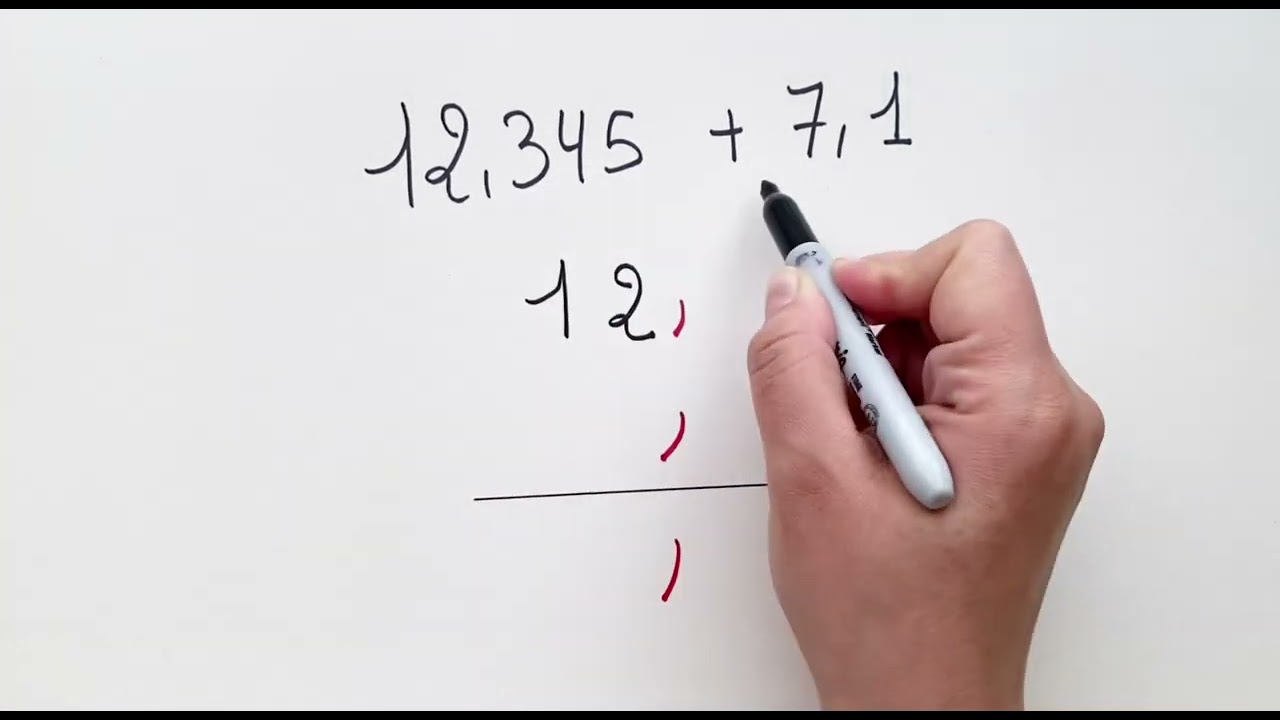 12,345 + 7,1
12,
,
,